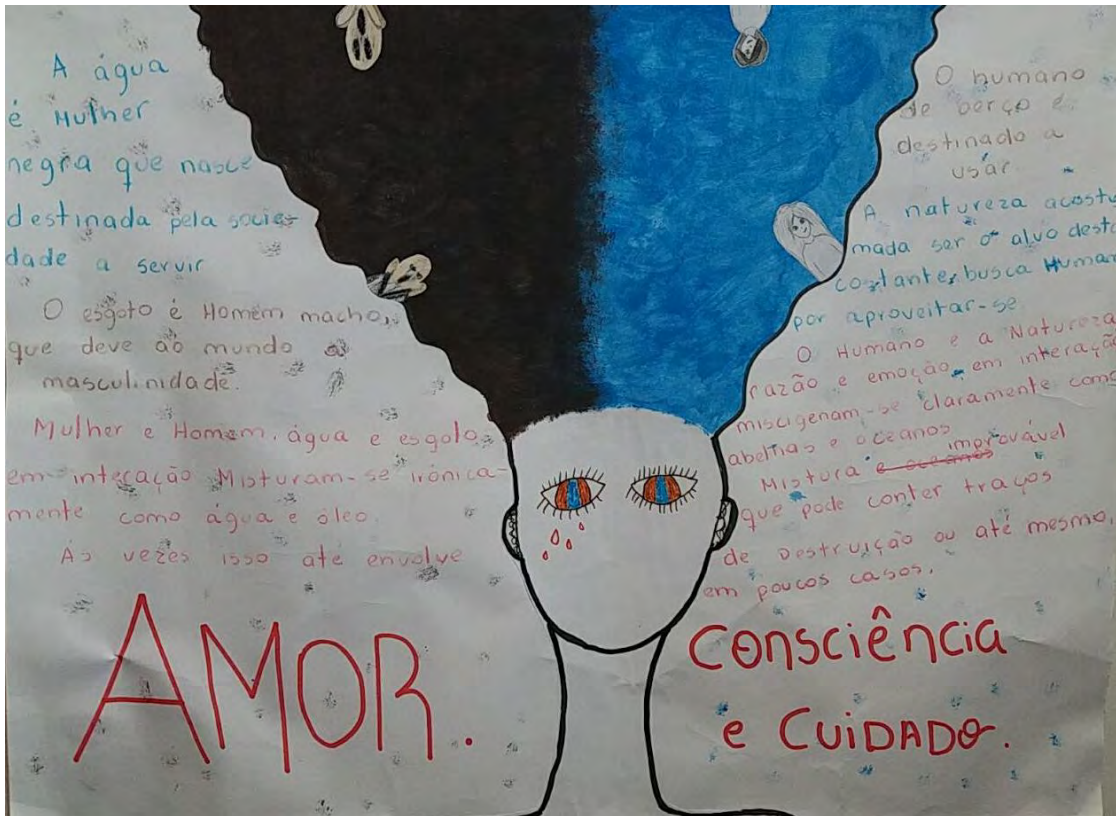 A água
é Mulher
negra que nasce
destinada pela socie-
dade a servir
O esgoto é Homem macho,
que deve ao mundo a
masculinidade.
Mulher e Homem, água e esgoto,
em interação Misturam-se irônica-
mente como água e óleo.
Às vezes isso até envolve
AMOR.
O humano
de berço é
destinado a
usar.
A natureza acostu
mada ser o alvo desta
constante, busca Humana
por aproveitar-se.
O Humano e a Natureza
razão e emoção, em interação
miscigenam-se claramente como
abelhas e oceanos
Mistura e oceanos improvável
que pode conter traços
de Destruição ou até mesmo,
em poucos casos,
Consciência
e CUIDADO.